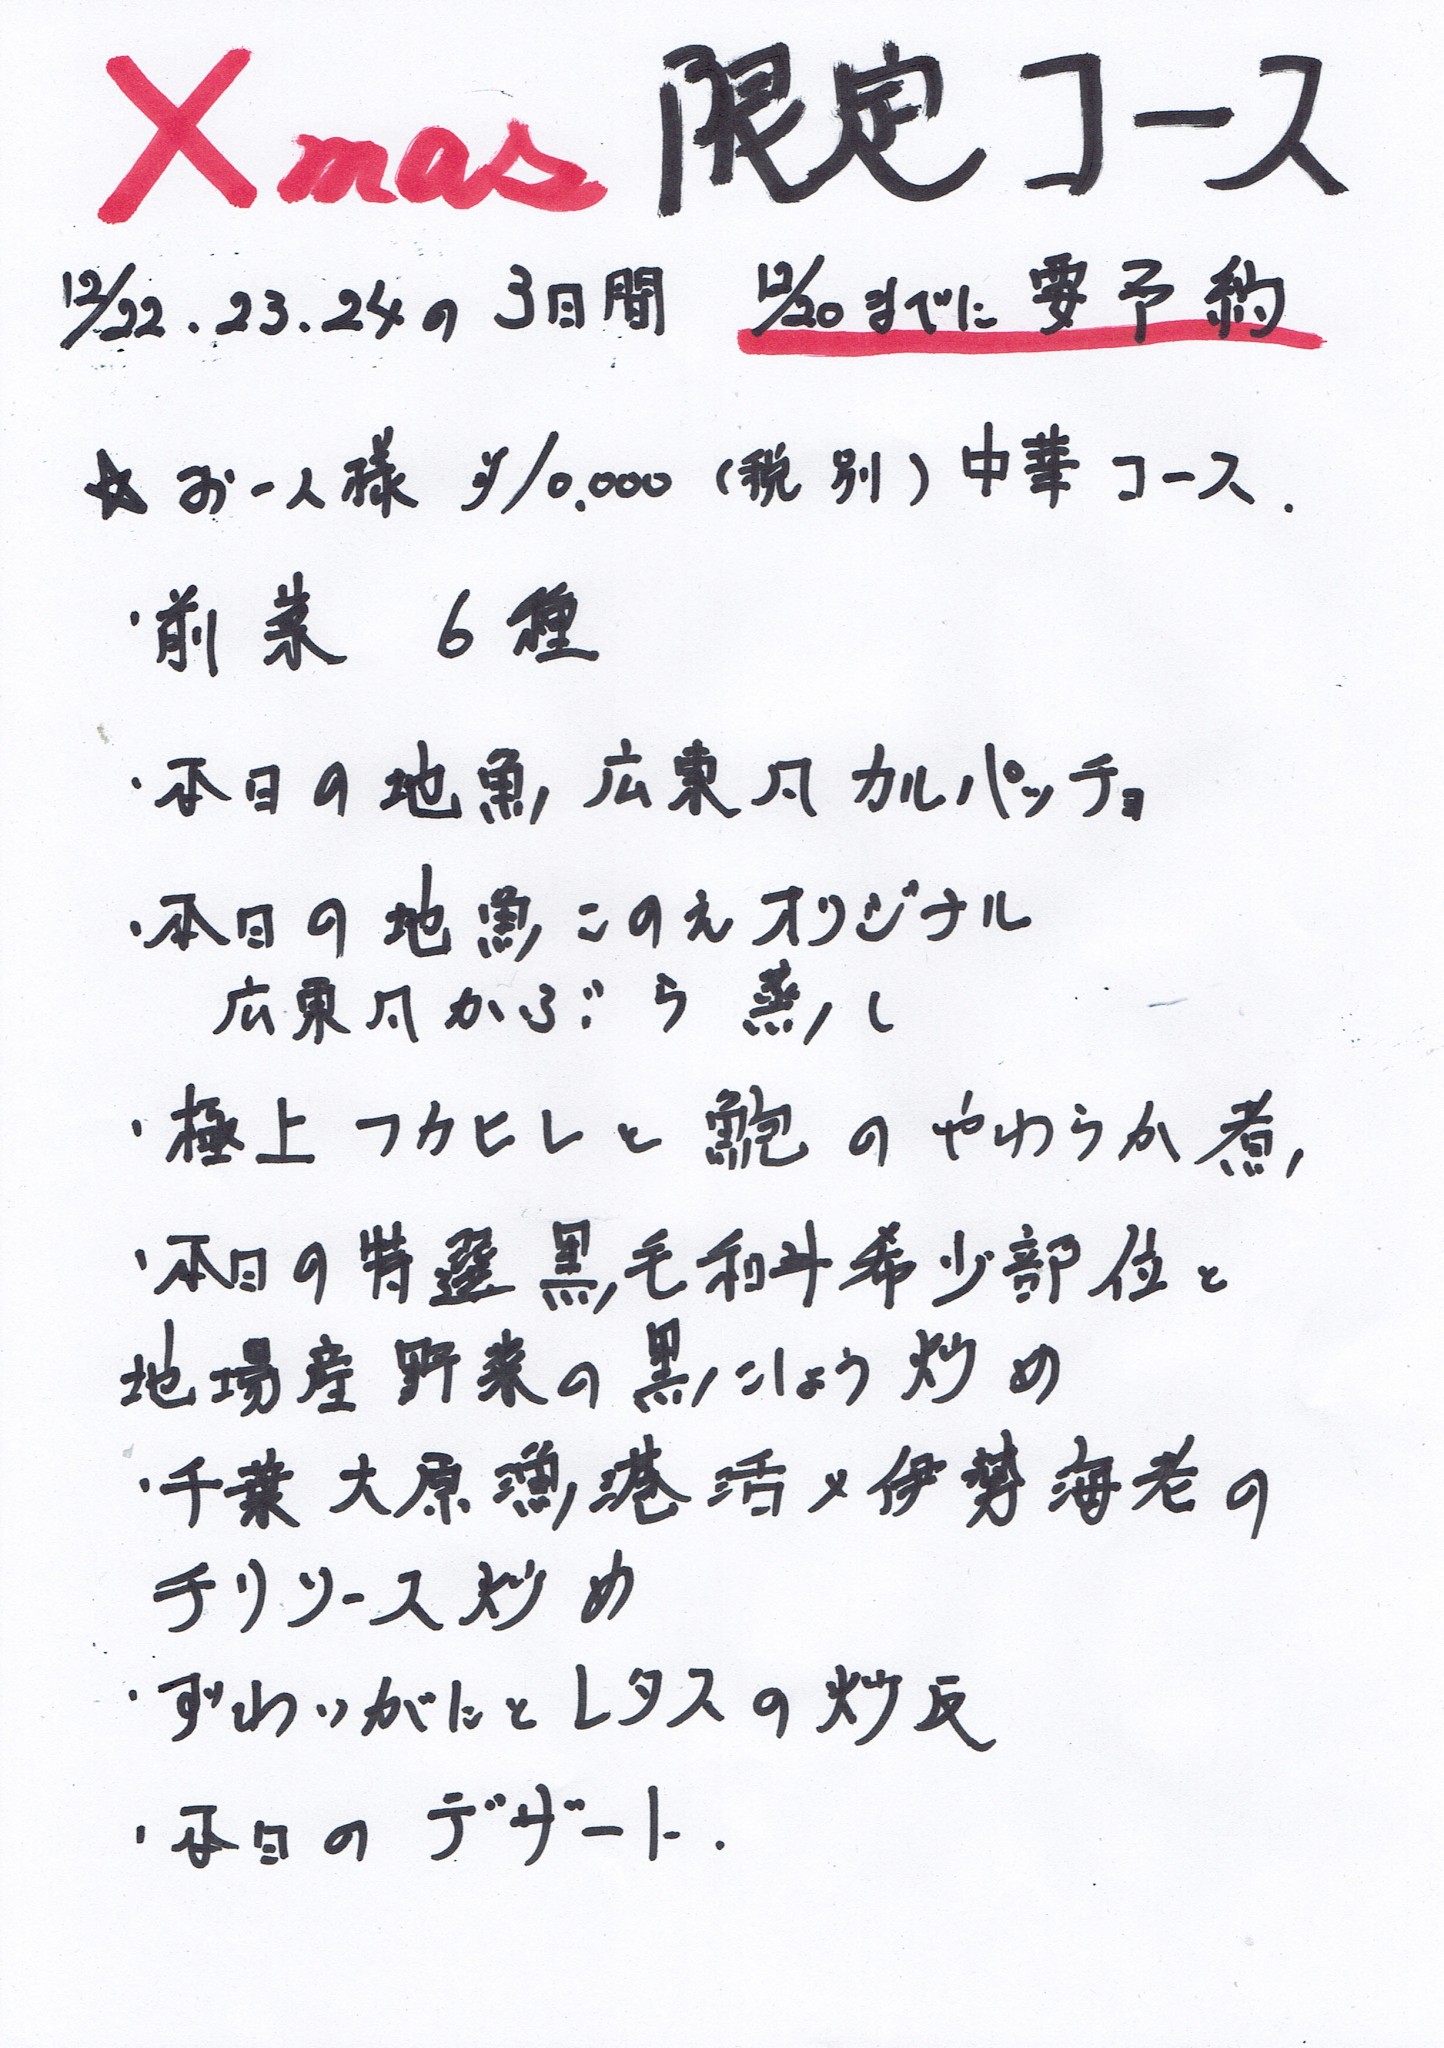 Xmas 限定コース
12/22.23.24の3日間 12/20までに要予約
☆お一人様 ¥10,000(税別)中華コース.
・前菜 6種
・本日の地魚 広東風カルパッチョ
・本日の地魚 このえオリジナル
広東風かぶら蒸し
・極上フカヒレと鮑のやわらか煮
・本日の特選黒毛和牛希少部位と
地場産野菜の黒こしょう炒め
・千葉大原漁港活〆伊勢海老の
チリソース炒め
・ずわいがにとレタスの炒反
・本日のデザート.